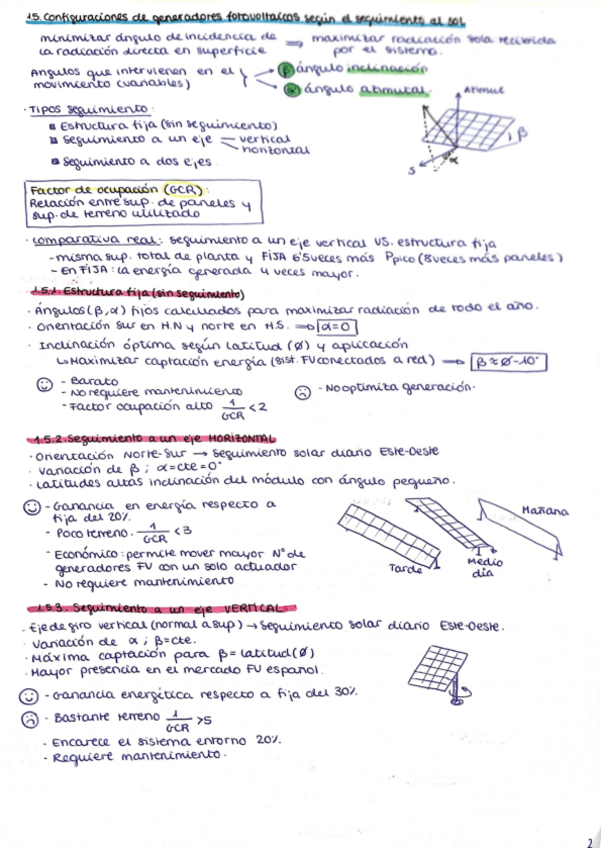 1.5. Configuraciones de generadores fotovoltaicos según el seguimiento al sol
minimizar ángulo de incidencia de la radiación directa en superficie ⟹ maximizar radiación sola recibida por el sistema.
Angulos que intervienen en el movimiento (variables)
β ángulo inclinación
α ángulo abimutal.
· Tipos seguimiento:
Estructura fija (sin seguimiento)
Seguimiento a un eje
vertical
horizontal
Seguimiento a dos ejes.
Azimut
β
α
S
Factor de ocupación (GCR):
Relación entre sup. de paneles y
sup. de terreno utilizado
· Comparativa real: seguimiento a un eje vertical VS. estructura fija
- misma sup. total de planta y FIJA 6'5 veces más Ppico (8 veces más paneles)
- En FIJA: la energía generada 4 veces mayor.
1.5.1 Estructura fija (sin seguimiento)
· Ángulos (β,α) fijos calculados para maximizar radiación de todo el año.
· Orientación Sur en H.N y norte en H.S. ⟹ α=0
· Inclinación óptima según latitud (Ø) y aplicación
↳ Maximizar captación energía (sist. FV conectados a red) ⟶ β≈Ø-10°
- Barato
- No requiere mantenimiento
- Factor ocupación alto 1/GCR < 2
- No optimiza generación.
1.5.2. Seguimiento a un eje HORIZONTAL
· Orientación Norte-Sur → Seguimiento solar diario Este-Oeste
· Variación de β ; α=cte=0°
· Latitudes altas inclinación del módulo con ángulo pequeño.
- Ganancia en energía respecto a
fija del 20%.
- Poco terreno. 1/GCR < 3
- Económico: permite mover mayor Nº de
generadores FV con un solo actuador
- No requiere mantenimiento
Tarde
Medio
día
Mañana
1.5.3. Seguimiento a un eje VERTICAL
· Eje de giro vertical (normal a sup) → Seguimiento solar diario Este-Oeste.
· Variación de α ; β=cte.
· Máxima captación para β = latitud (Ø)
· Mayor presencia en el mercado FV español.
- Ganancia energética respecto a fija del 30%.
- Bastante terreno 1/GCR >5
- Encarece el sistema entorno 20%.
- Requiere mantenimiento.
2